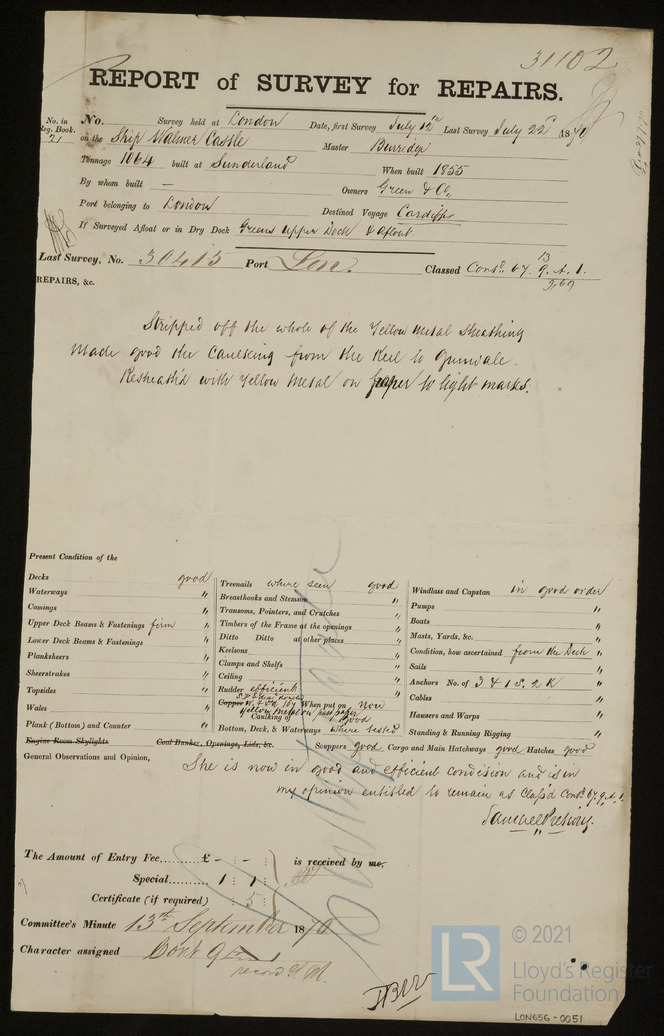 31102
REPORT of SURVEY for REPAIRS.
No. in Reg. Book. 21
No. Survey held at London Date, first Survey July 12th Last Survey July 22d 1870
on the Ship Walmer Castle Master Burridge
Tonnage 1064 built at Sunderland When built 1855
By whom built — Owners Green & Co,
Port belonging to London Destined Voyage Cardiff
If Surveyed Afloat or in Dry Dock Greens Upper Dock & afloat.
Last Survey, No. 30415 Port Lon. Classed Contd. 67. 9. A. 1.
13
2,69
REPAIRS, &c.
Stripped off the whole of the Yellow Metal Sheathing
Made good the Caulking from the Keel to Gunwale.
Resheath'd with Yellow Metal on paper to light marks.
Present Condition of the
Decks good
Waterways "
Comings "
Upper Deck Beams & Fastenings firm "
Lower Deck Beams & Fastenings "
Planksheers "
Sheerstrakes "
Topsides "
Wales "
Plank (Bottom) and Counter "
Engine Room Skylights Coal Bunker, Openings, Lids, &c.
Treenails where seen good
Breasthooks and Stemson "
Transoms, Pointers, and Crutches "
Timbers of the Frame at the openings "
Ditto Ditto at other places "
Keelsons "
Clamps and Shelfs "
Ceiling "
Rudder efficient
Copper When put on Now
Yellow Metal on paper
Caulking of good
Bottom, Deck, & Waterways where tested
Windlass and Capstan in good order
Pumps "
Boats "
Masts, Yards, &c. "
Condition, how ascertained from the Deck "
Sails "
Anchors No. of 3 & 1 S. 2 K "
Cables "
Hawsers and Warps "
Standing & Running Rigging "
Scuppers good Cargo and Main Hatchways good Hatches good
General Observations and Opinion,
She is now in good and efficient condition and is in
my opinion entitled to remain as Class'd Contd. 67. 9. A. 1.
Samuel Pretious.
The Amount of Entry Fee.... £ - : - : is received by me,
Special......... 1 : 1 :
Certificate (if required) : 5 :
Committee's Minute 13th September 1870
Character assigned Cont 9 A 1
record Y. M.
© 2021
LR
Lloyd's Register
Foundation
LON656-0051